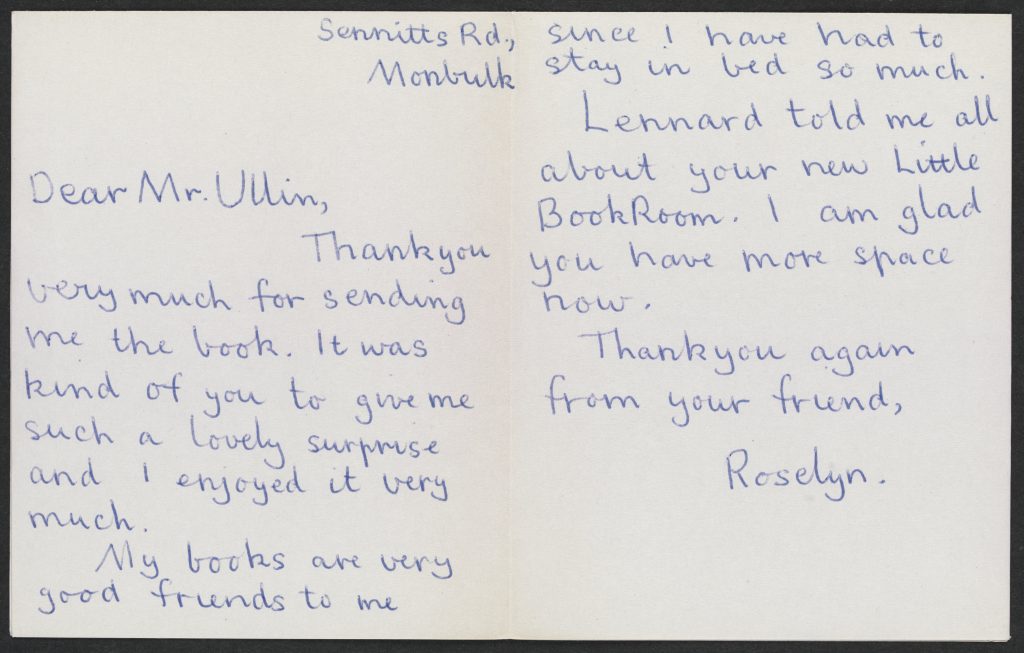 Sennitts Rd.,
Monbulk
Dear Mr. Ullin,
Thankyou
very much for sending
me the book. It was
kind of you to give me
such a lovely surprise
and I enjoyed it very
much.
My books are very
good friends to me
since I have had to
stay in bed so much.
Lennard told me all
about your new Little
BookRoom. I am glad
you have more space
now.
Thankyou again
from your friend,
Roselyn.